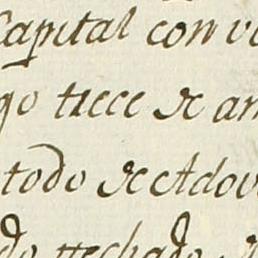 Capital con v
go trece de an
todo de Adov
do techado